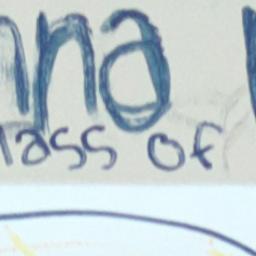 nna
lass of